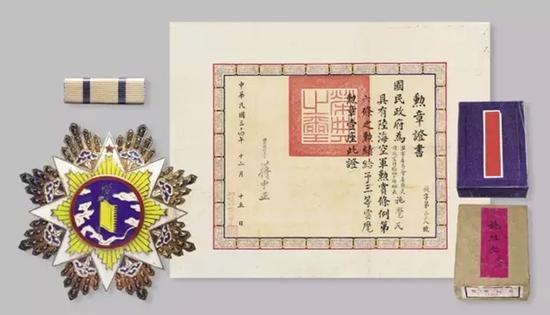 勳章證書
國民政府為 施覺民
具有陸海空軍勳賞條例第
六條之勳績給予三等雲麾
勳章壹座此證
蔣中正
中華民國三十四年 十二月 十五日
榮典之璽